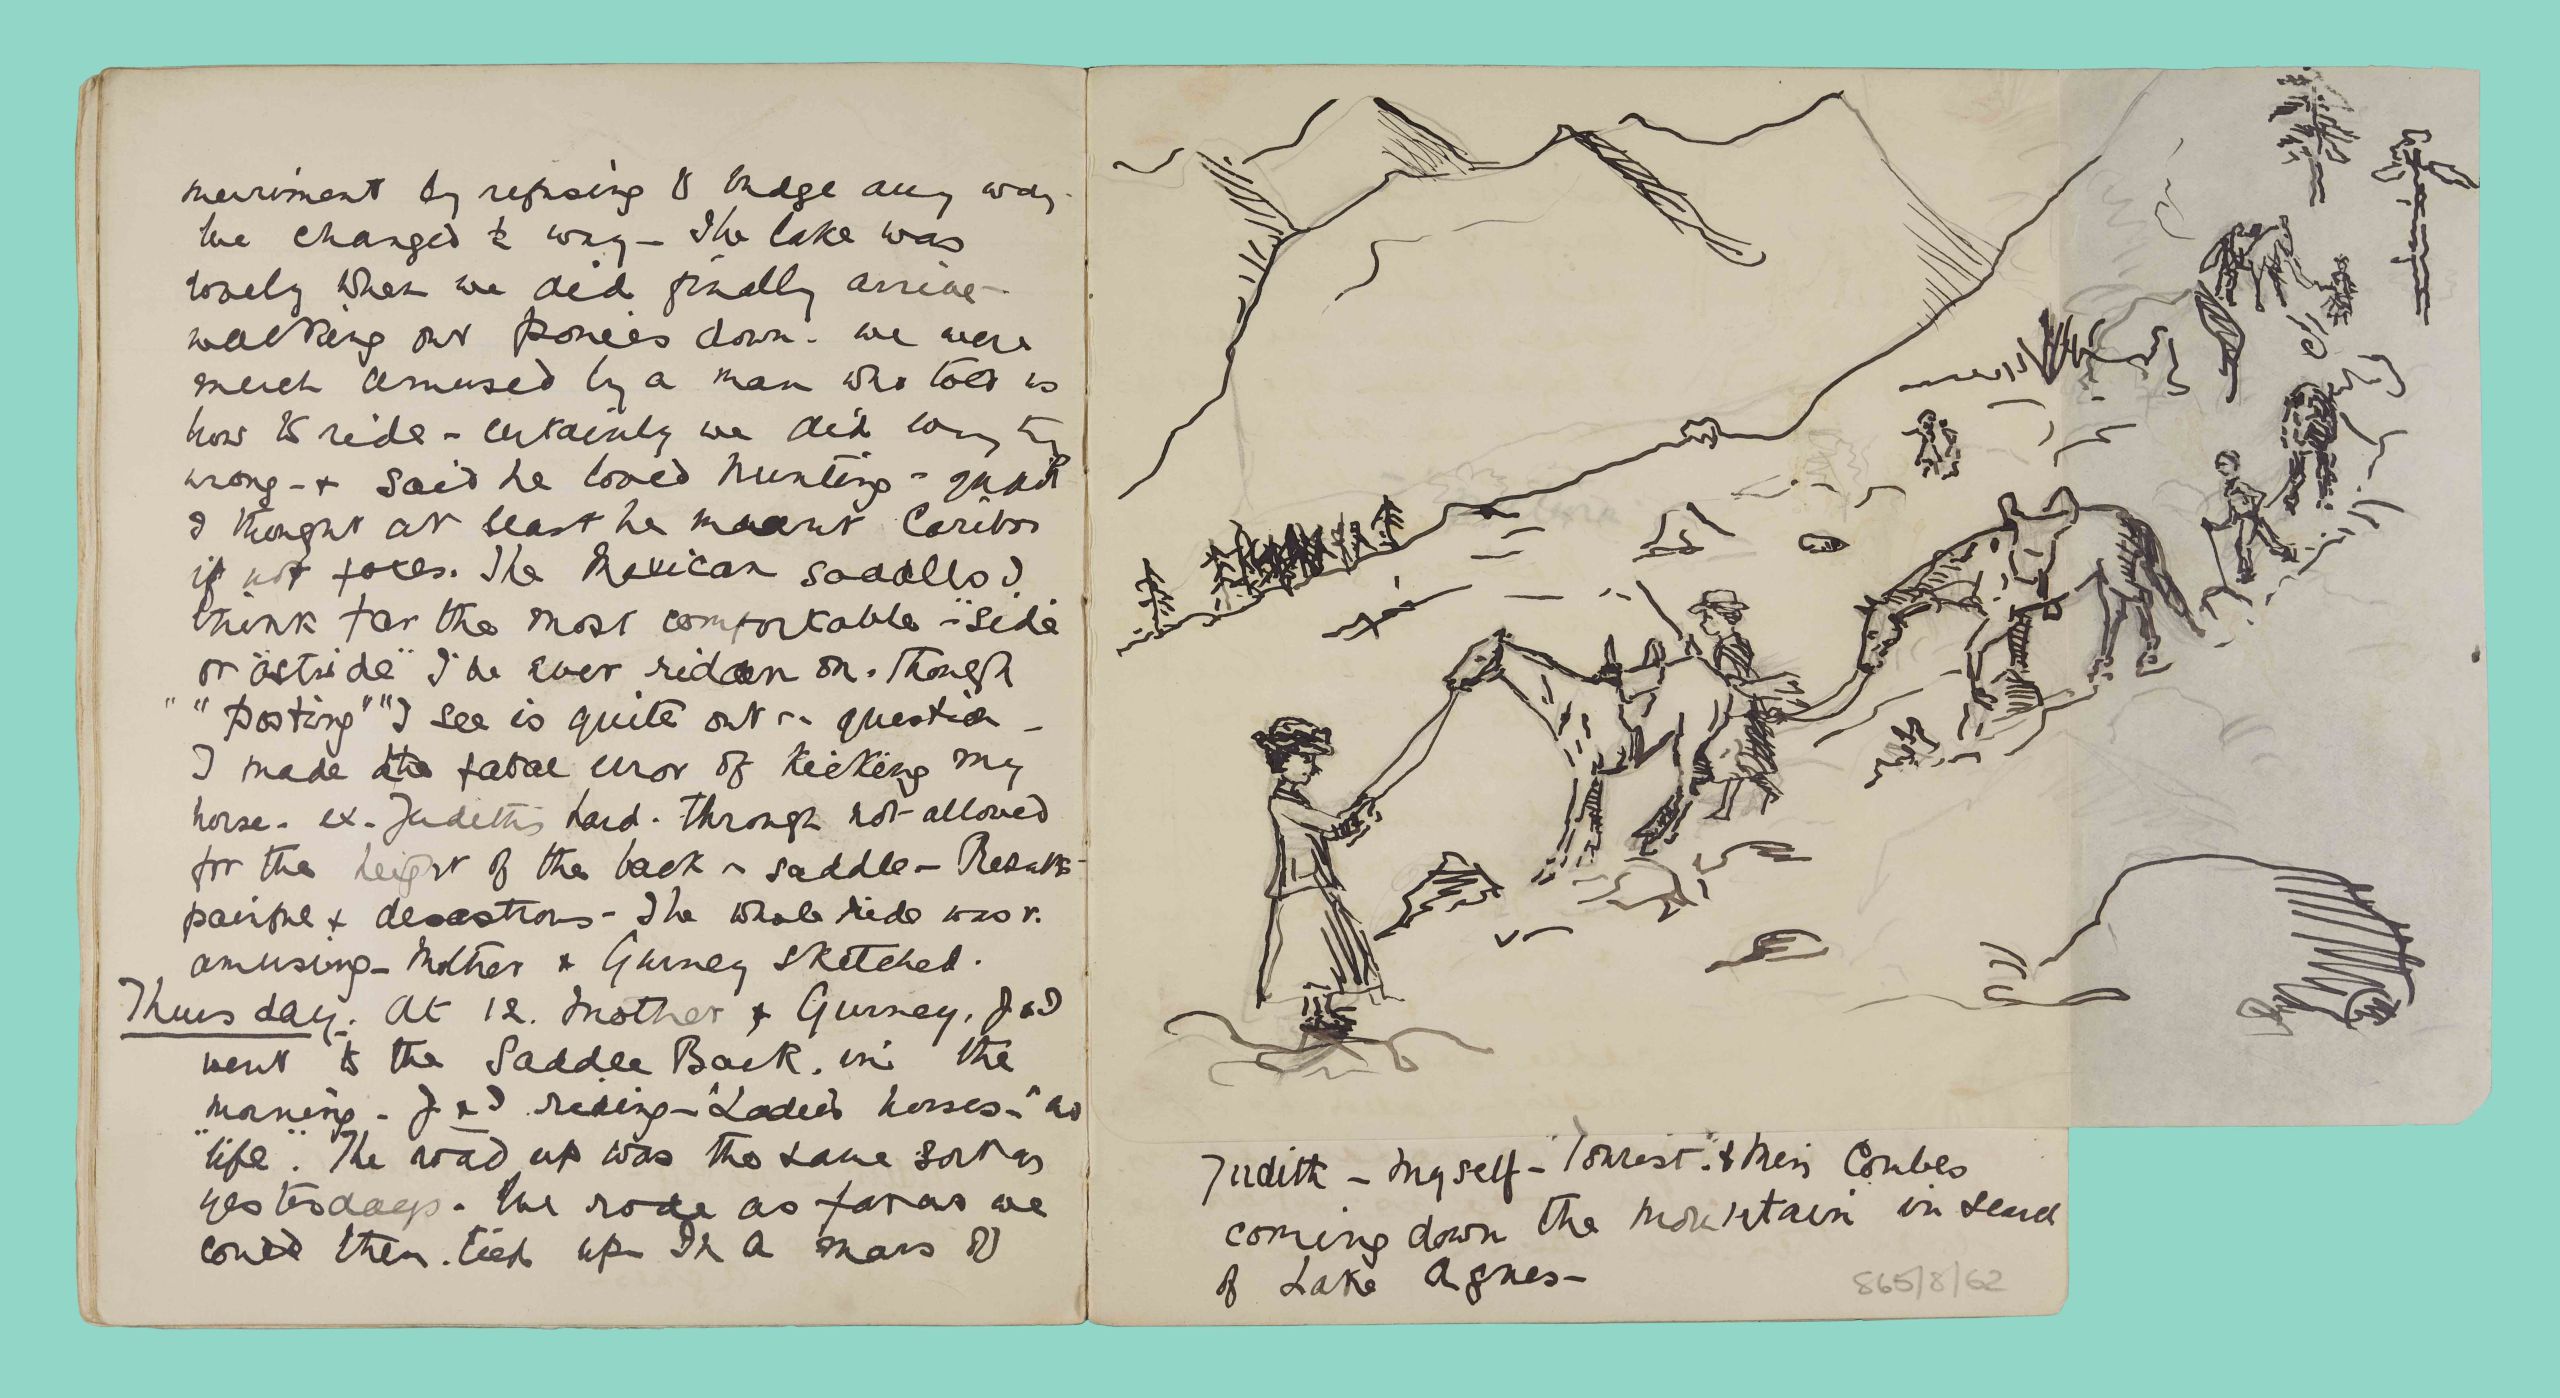 merriment by refusing to budge any way
we changed to way - The lake was
lovely when we did finally arrive -
walking our ponies down. we were
much amused by a man who told us
how to ride - certainly we did
wrong - & said he loved hunting -
I thought at least he meant Caribou
if not foxes. The Mexican saddles I
think far the most comfortable - "side
or "astride" I've ever ridden on. Though
" "posting" " I see is quite out question -
I made the fatal error of kicking my
horse - ex - Judith's hard. through not allowed
for the height of the back saddle - Result -
painful & desastrous - The whole ride was v.
amusing - Mother & Gurney sketched.
Thursday. At 12. Mother & Gurney. J & I
went to the Saddle Back. in the
morning - J & I riding - "Ladies horses -" as
"life". The road up was the same sort as
yesterdays. We rode as far as we
could then tied up In a mass of
Judith - Myself - Tourist. & Mein Combes
coming down the Mountain in search
of Lake Agnes -
865/8/62